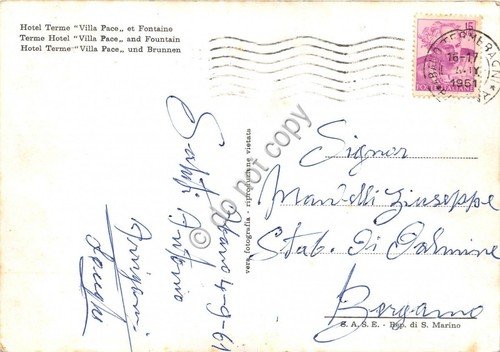 Hotel Terme "Villa Pace„ et Fontaine
Terme Hotel "Villa Pace„ and Fountain
Hotel Terme "Villa Pace„ und Brunnen
15
16-17
1961
POSTE ITALIANE
Abano 4-9-61
Saluti
Signor
Giuseppe
Stab. Di Dalmine
Bergamo
vera fotografia - riproduzione vietata
S. A. S. E. - Rep. di S. Marino
do not copy